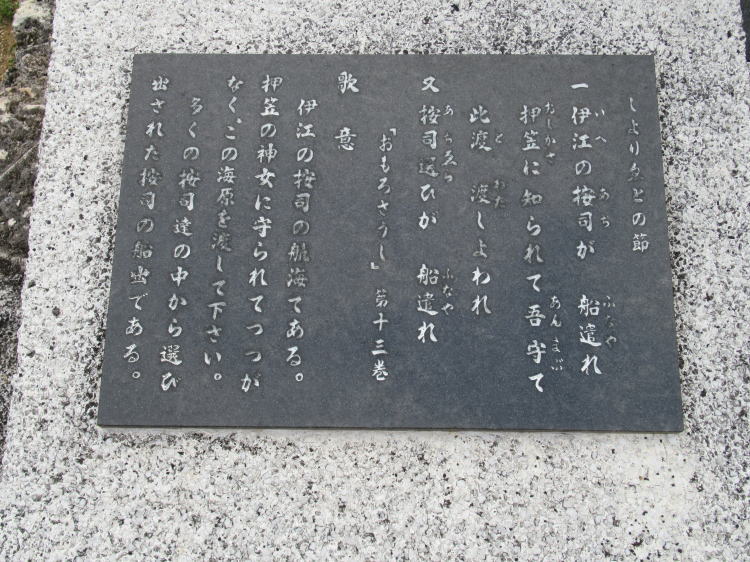 しよりゑとの節
一 伊江の按司が 船遣れ
押笠に知られて吾守て
此渡 渡しよわれ
又 按司選ひが 船遣れ
「おもろさうし」 第十三巻
歌意
伊江の按司の航海てある。
押笠の神女に守られてつつが
なく、この海原を渡して下さい。
多くの按司達の中から選び
出された按司の船出である。